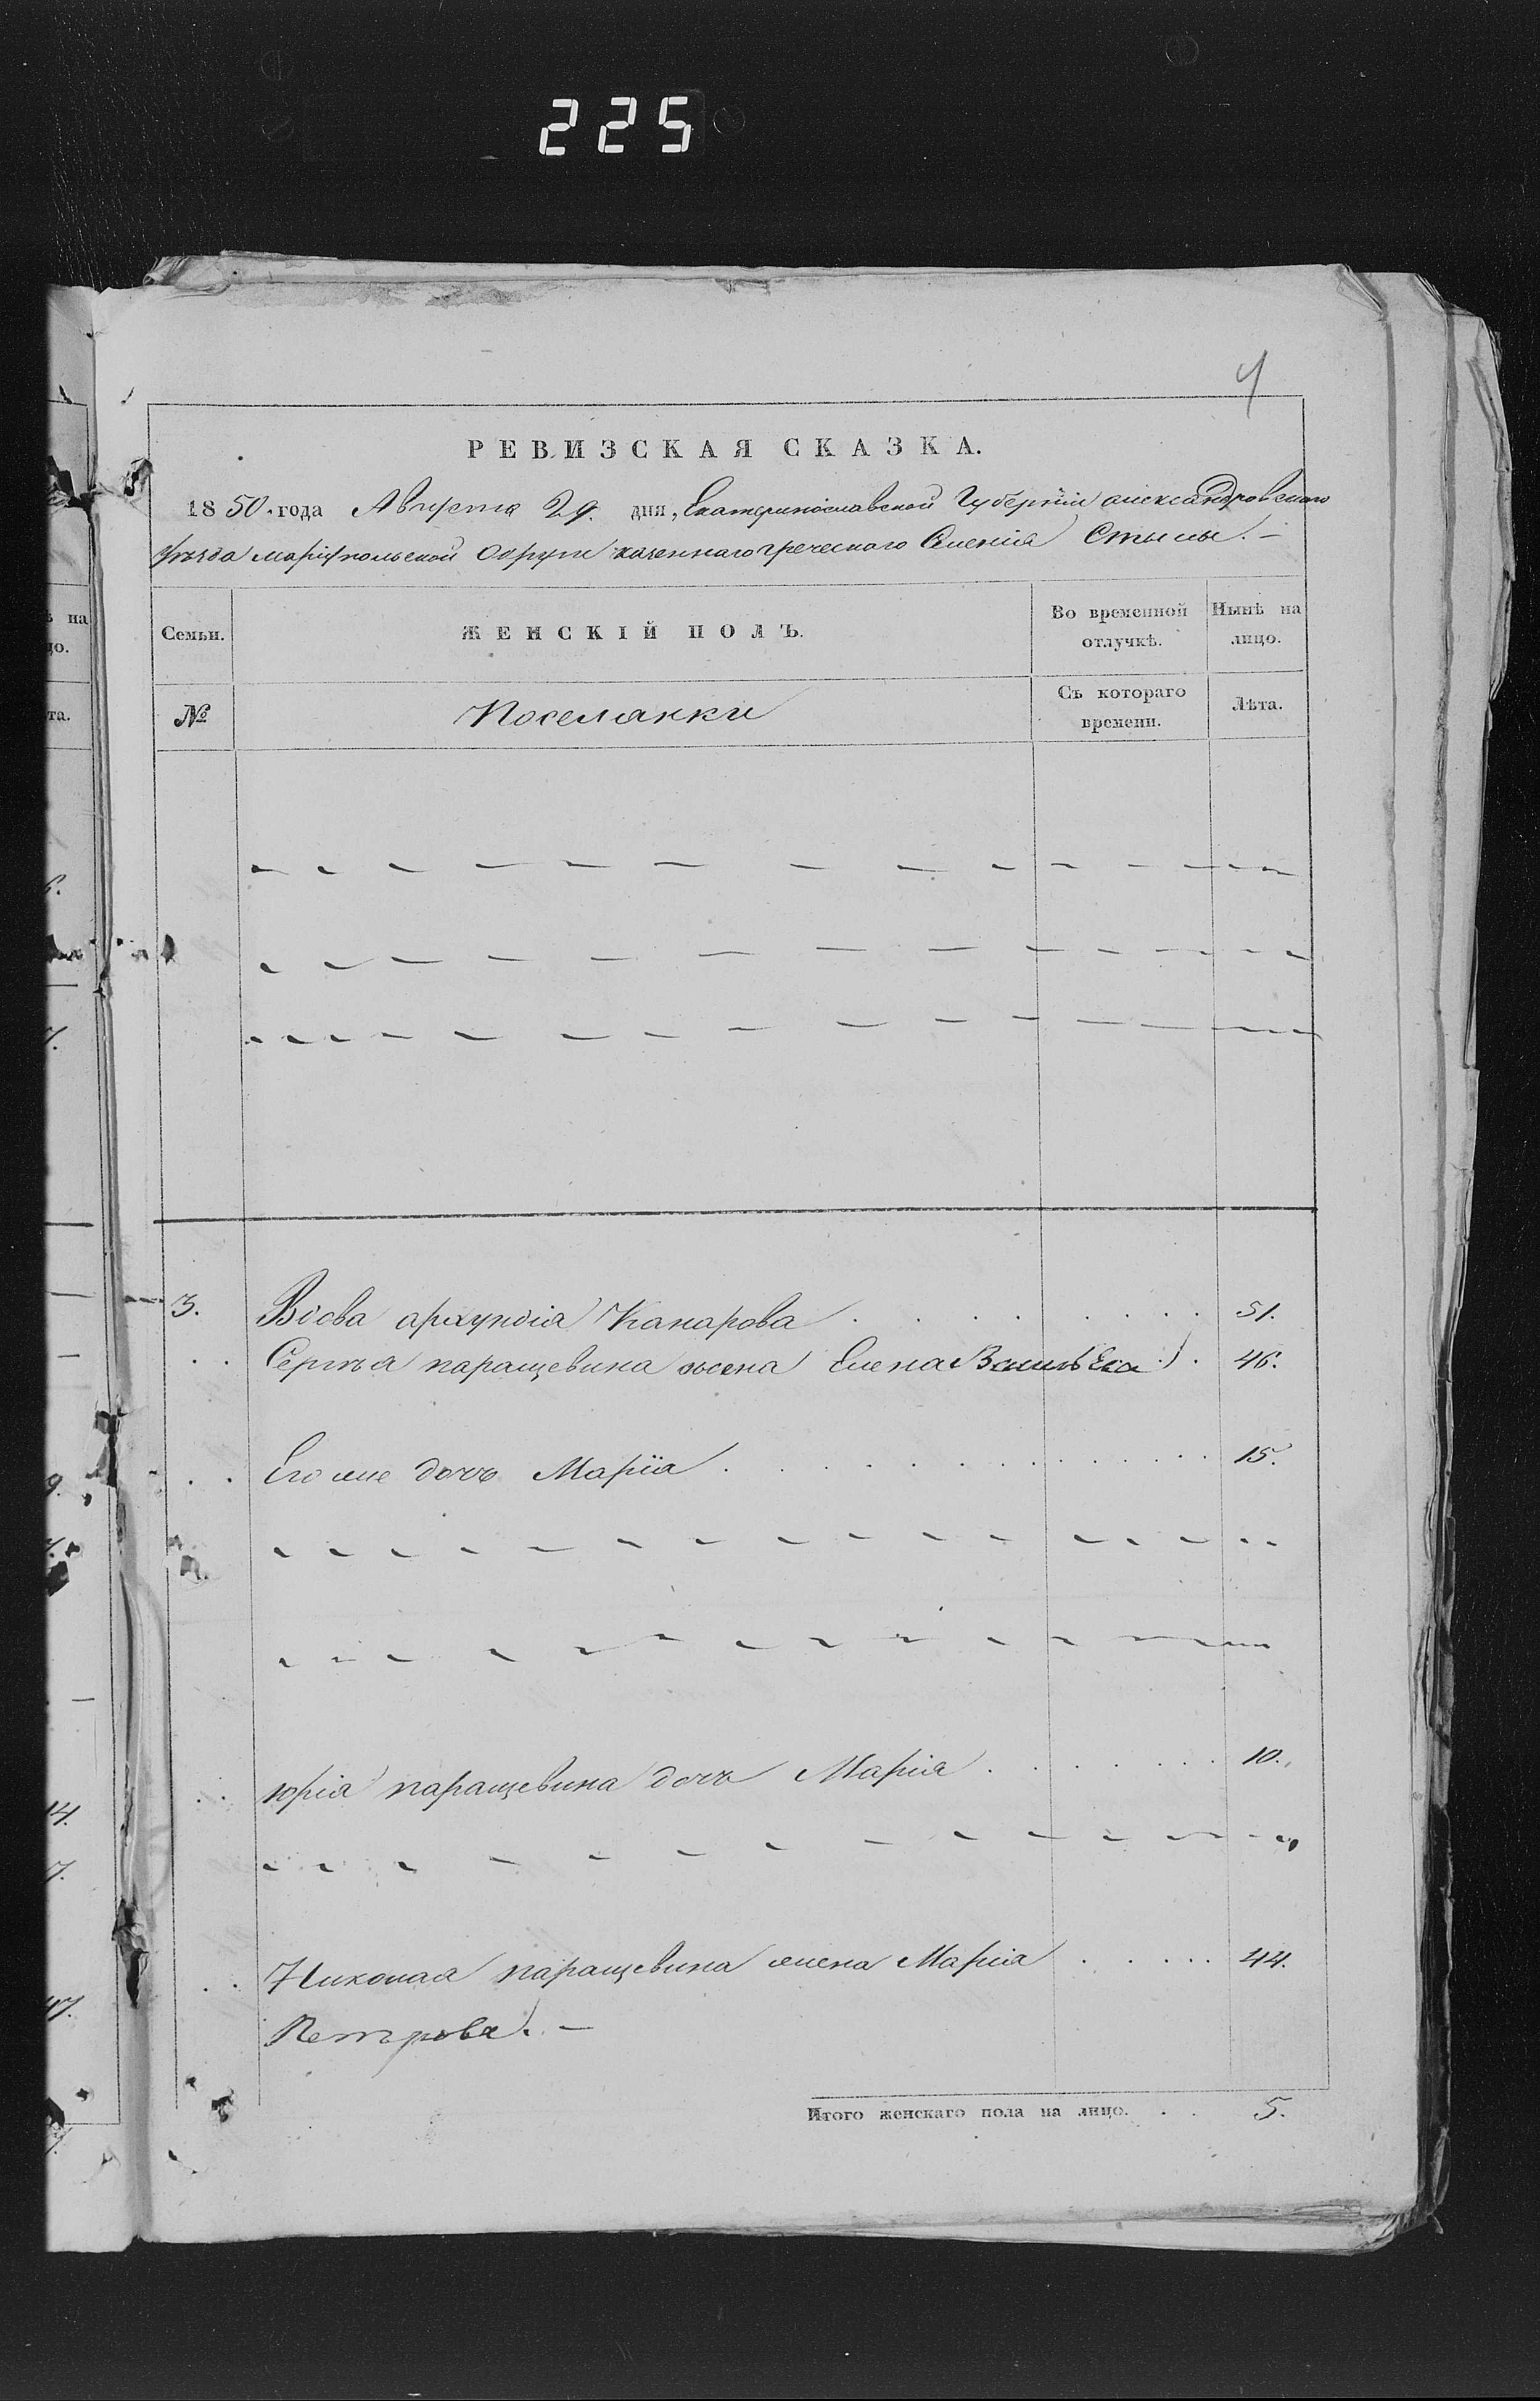 225
4
РЕВИЗСКАЯ СКАЗКА.
1850. года Августа 29. дня, Екатеринославской Губерніи александровскаго
уѣзда маріупольской округи казеннаго греческаго Селенія Стылы. –
Семьи.
ЖЕНСКІЙ ПОЛЪ.
Во временной отлучкѣ.
Нынѣ на лицо.
№
Поселянки
Съ котораго времени.
Лѣта.
3. Вдова Канарова 51.
Сергѣя паращевина жена Елена 46.
Его же дочь Марія 15.
юрія паращевина дочь Марія 10.
Николая паращевина жена Марія 44.
Петрова. –
Итого женскаго пола на лицо. 5.